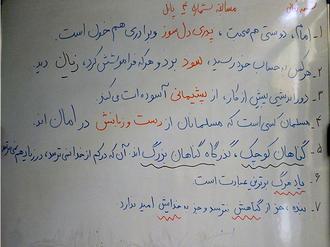 ۱- امام، دوستی هم صحبت، پدری دل سوز و برادری هم خون است.
۲- هرکس به حساب خود رسید، سود برد و هرکه فراموش کرد، زیان دید.
۳- دوراندیشی پیش از کار، از پشیمانی آسوده ات می‌کند.
۴- مسلمان کسی است که مسلمانان از دست و زبانش در امان اند.
۵- گناهان کوچک، گذرگاه گناهان بزرگ اند. آن که در کم از خدا نمی ترسد، در زیاد هم نمی ترسد
۶- یاد مرگ برترین عبادت است.
۷- بنده، جز از گناهش نترسد و جز به خدایش امید ندارد